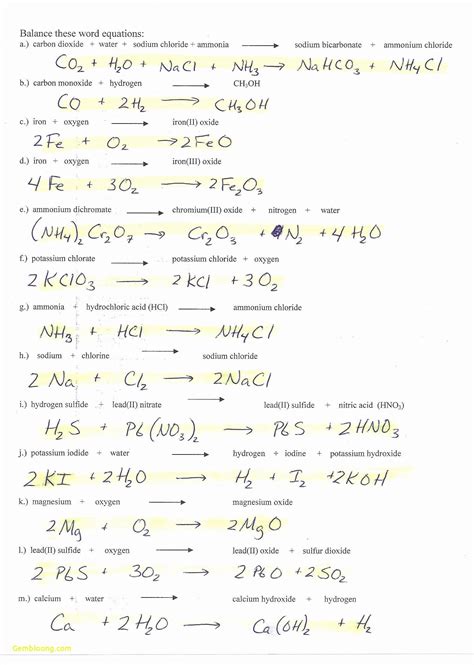 Balance these word equations:
a.) carbon dioxide + water + sodium chloride + ammonia ⟶ sodium bicarbonate + ammonium chloride
CO₂ + H₂O + NaCl + NH₃ ⟶ NaHCO₃ + NH₄Cl
b.) carbon monoxide + hydrogen ⟶ CH₃OH
CO + 2H₂ ⟶ CH₃OH
c.) iron + oxygen ⟶ iron(II) oxide
2Fe + O₂ ⟶ 2FeO
d.) iron + oxygen ⟶ iron(III) oxide
4Fe + 3O₂ ⟶ 2Fe₂O₃
e.) ammonium dichromate ⟶ chromium(III) oxide + nitrogen + water
(NH₄)₂Cr₂O₇ ⟶ Cr₂O₃ + N₂ + 4H₂O
f.) potassium chlorate ⟶ potassium chloride + oxygen
2KClO₃ ⟶ 2KCl + 3O₂
g.) ammonia + hydrochloric acid (HCl) ⟶ ammonium chloride
NH₃ + HCl ⟶ NH₄Cl
h.) sodium + chlorine ⟶ sodium chloride
2Na + Cl₂ ⟶ 2NaCl
i.) hydrogen sulfide + lead(II) nitrate ⟶ lead(II) sulfide + nitric acid (HNO₃)
H₂S + Pb(NO₃)₂ ⟶ PbS + 2HNO₃
j.) potassium iodide + water ⟶ hydrogen + iodine + potassium hydroxide
2KI + 2H₂O ⟶ H₂ + I₂ + 2KOH
k.) magnesium + oxygen ⟶ magnesium oxide
2Mg + O₂ ⟶ 2MgO
l.) lead(II) sulfide + oxygen ⟶ lead(II) oxide + sulfur dioxide
2PbS + 3O₂ ⟶ 2PbO + 2SO₂
m.) calcium + water ⟶ calcium hydroxide + hydrogen
Ca + 2H₂O ⟶ Ca(OH)₂ + H₂
Gembloong.com